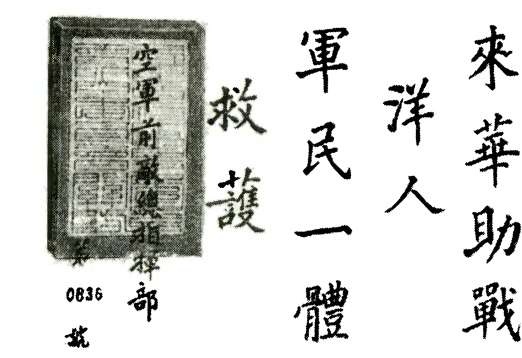 來華助戰
洋人
軍民一體
救護
空軍前敵總指揮部
第
0836
號